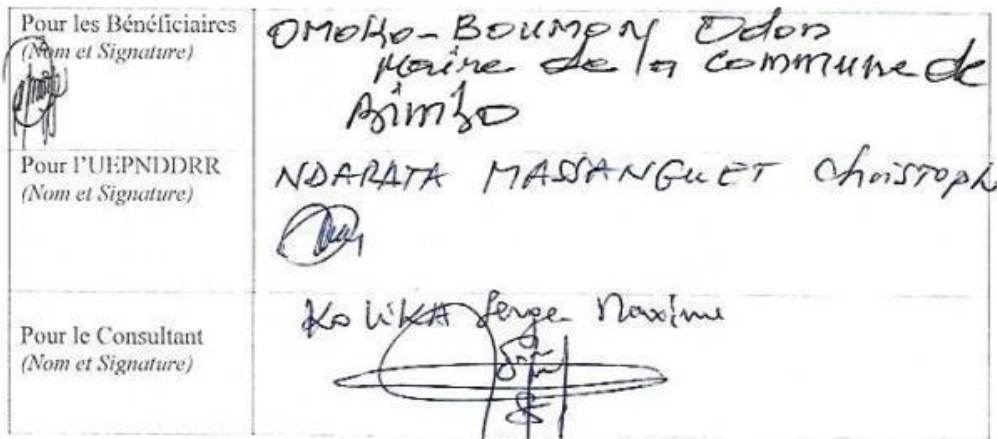 Pour les Bénéficiaires
(Nom et Signature)
OMOKO-BOUMON Odon
Maire de la Commune de
Bimbo
Pour l'UEPNDDRR
(Nom et Signature)
NDARATA MASSANGUET Christoph
Pour le Consultant
(Nom et Signature)
KoliKA Serge Maxime